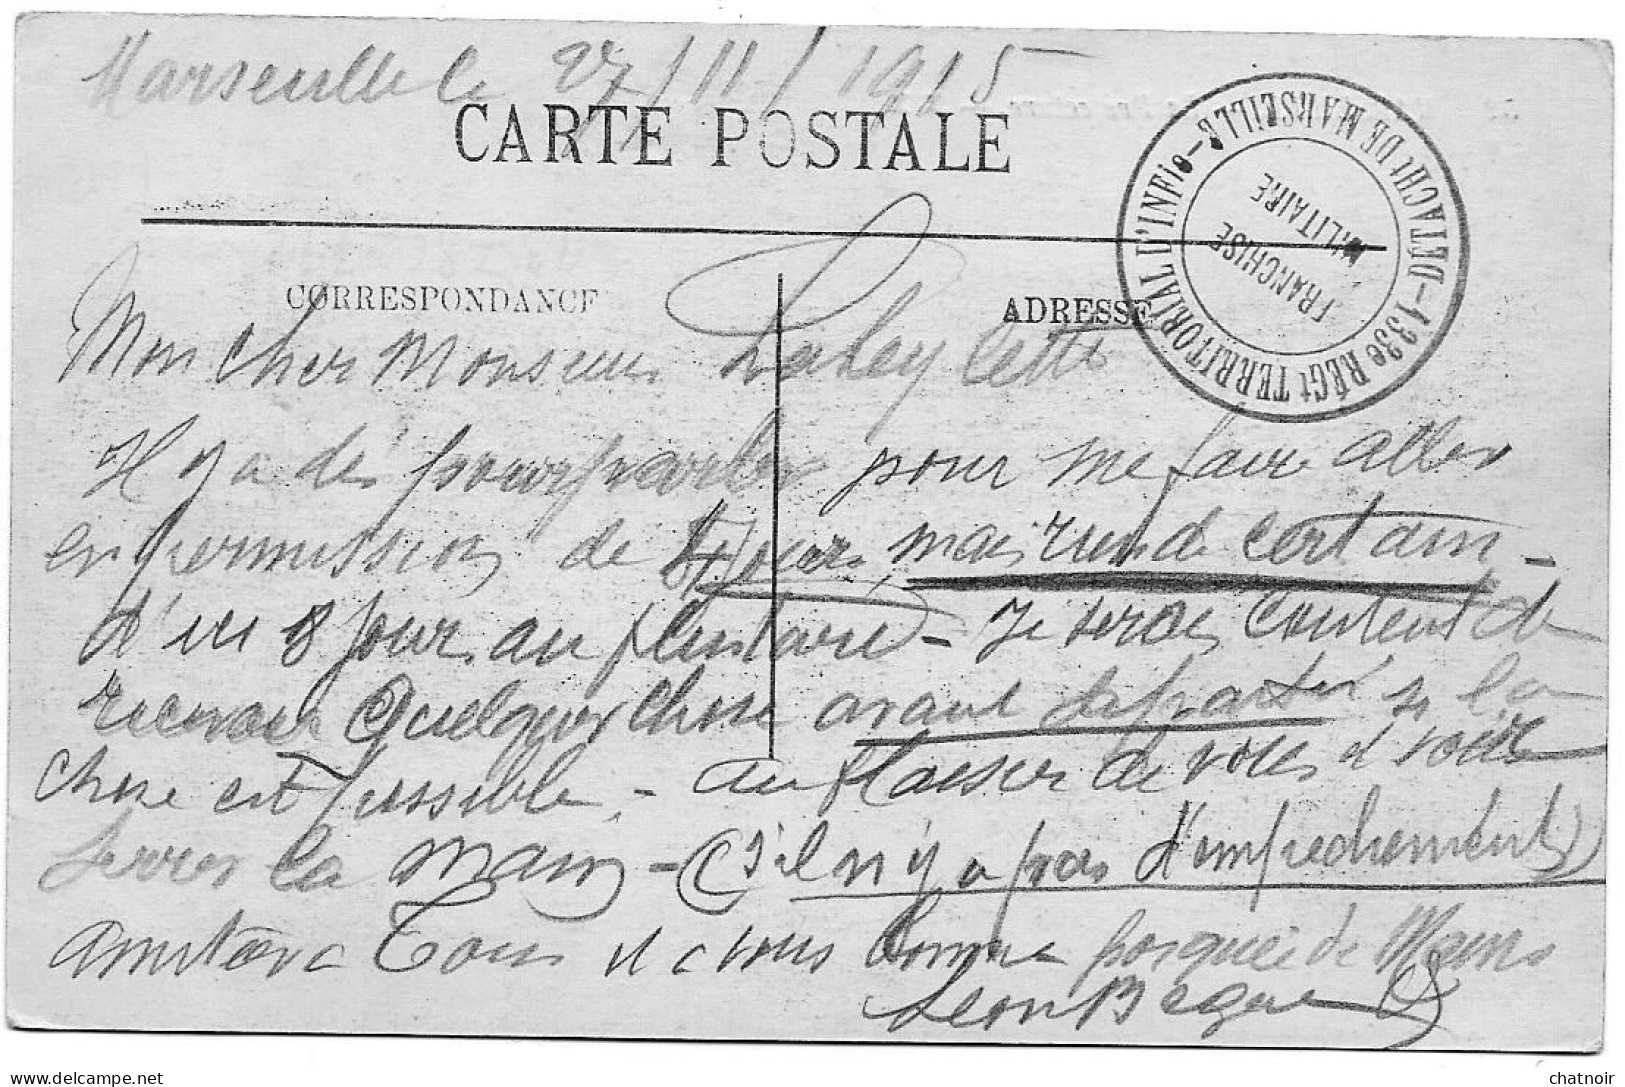 Marseille le 27/11/1915
CARTE POSTALE
133e RÉGt TERRITORIAL D'INFie - DÉTACHt DE MARSEILLE
FRANCHISE
MILITAIRE
CORRESPONDANCE
ADRESSE
Mon cher Monsieur Labeylette
Il y a des pourparler pour me faire aller
en permission de jours, mais rien de certain -
d'ici 8 jours au plus tard - Je serais content de
recevoir Quelque chose avant de partir si la
chose est possible. - au plaisir de vous et vous
serrer la main - (s'il n'y a pas d'empechement)
a Tous et a vous bonne poignée de Mains
Leon
chatnoir